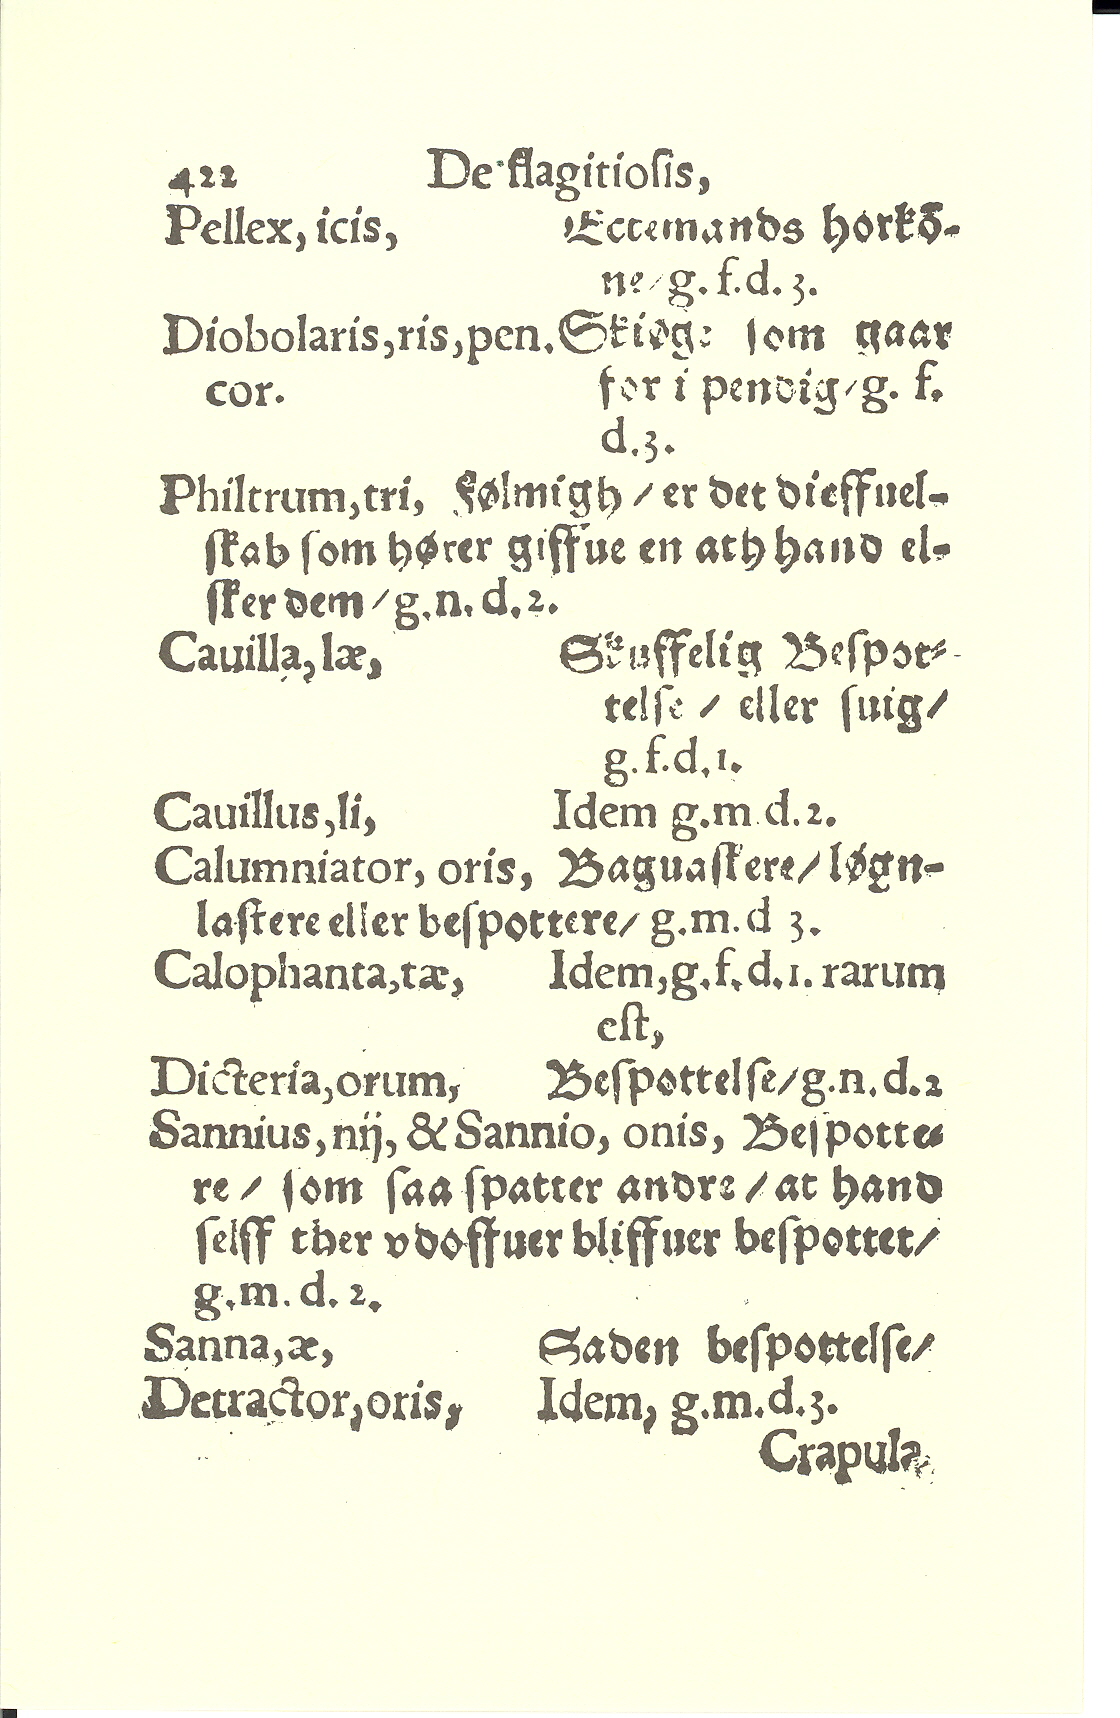 422 De flagitiosis,
Pellex, icis, Ectemands horkō-
ne/g. f.d. 3.
Diobolaris,ris,pen. Skiøge som gaar
cor. for i pendig/g. f.
d.3.
Philtrum,tri, Følmigh / er det dieffuel-
ſkab ſom hører giffue en ath hand el-
ſker dem /g.n. d.2.
Cauilla, læ, Skuffelig Beſpot-
telſe / eller ſuig/
g. f.d.1.
Cauillus,li, Idem g.m d.2.
Calumniator, oris, Baguaſkere/løgn-
laſtere eller beſpottere/ g.m.d 3.
Calophanta,tæ, Idem,g.f.d.1. rarum
eſt,
Dicteria,orum, Beſpottelſe/g.n.d.2
Sannius,nij, & Sannio, onis, Beſpotte-
re / ſom ſaa ſpatter andre /at hand
ſelff ther vdoffuer bliffuer beſpottet/
g.m. d. 2.
Sanna,æ, Saden beſpottelſe/
Detractor,oris, Idem, g.m.d.3.
Crapula